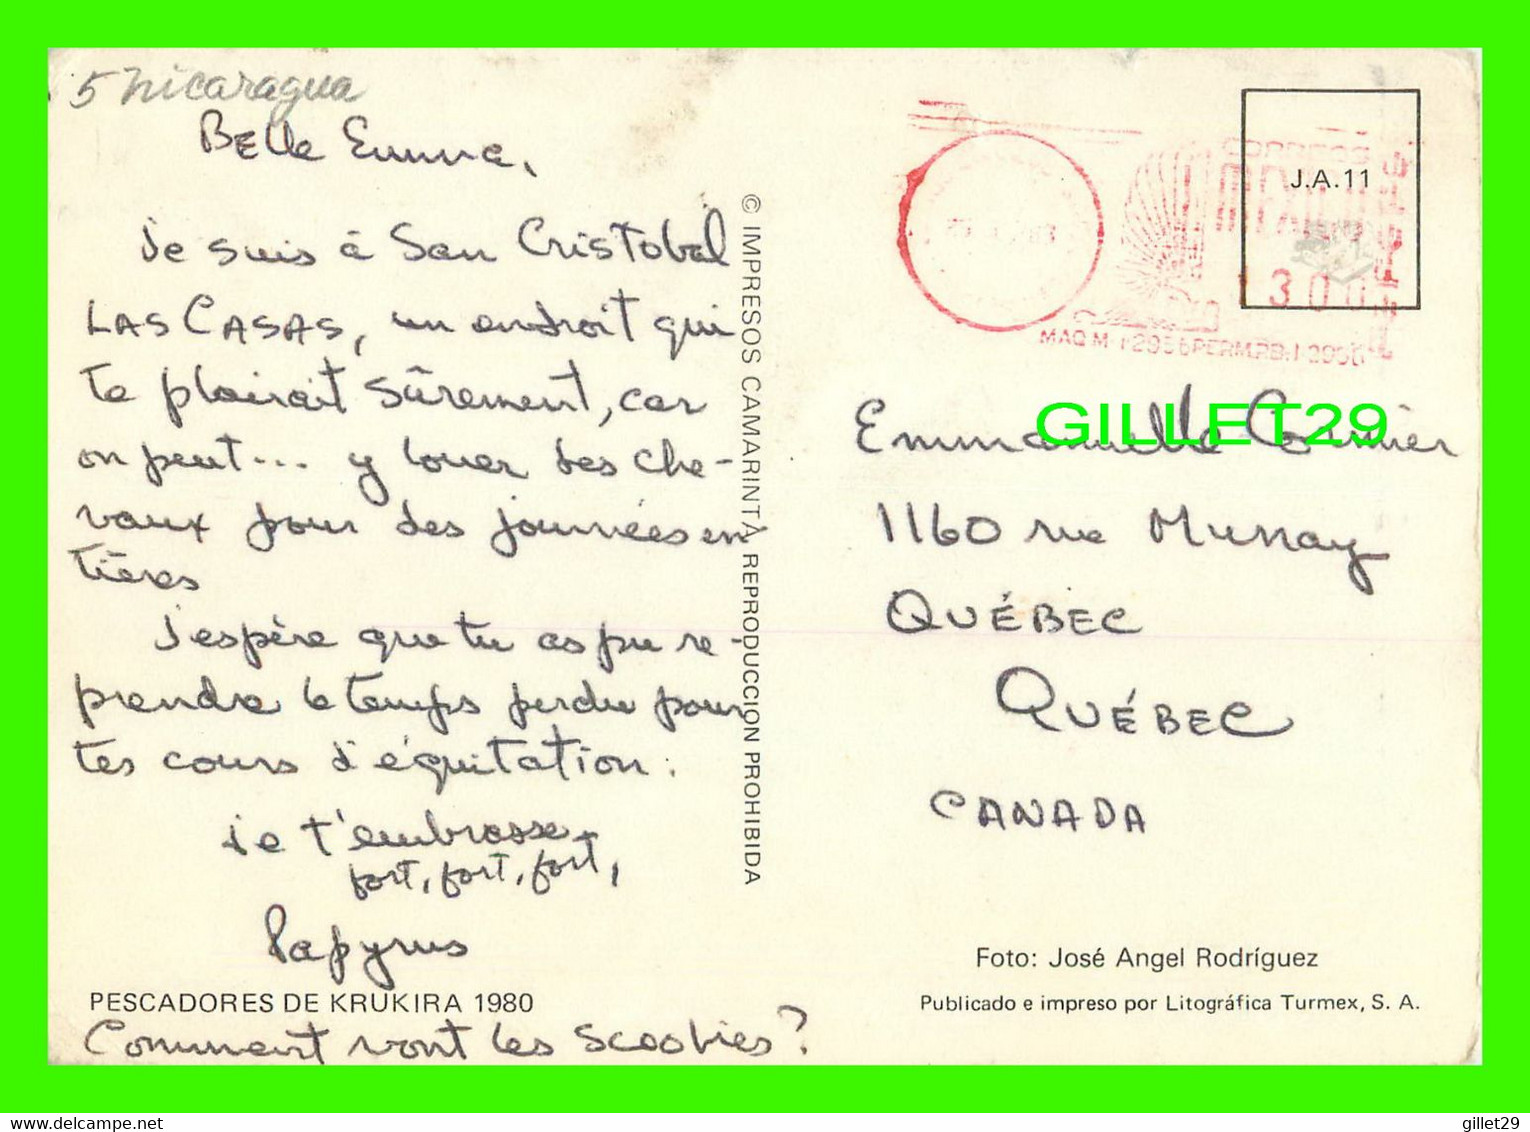 5 Nicaragua
BELLE Emma,
Je suis à San Cristobal
LAS CASAS, un endroit qui
te plairait sûrement, car
on peut... y louer des che-
vaux pour des journées en
tières
J'espère que tu as pu re-
prendre le temps perdu pour
tes cours d'équitation.
Je t'embrasse
fort, fort, fort,
Papyrus
PESCADORES DE KRUKIRA 1980
Comment vont les scoobies?
© IMPRESOS CAMARINTA REPRODUCCION PROHIBIDA
CORREOS
MEXICO
J.A.11
1300
MAQ M
GILLET29
Emmanuelle Cormier
1160 rue Murray
QUÉBEC
QUÉBEC
CANADA
Foto: José Angel Rodríguez
Publicado e impreso por Litográfica Turmex, S. A.
delcampe.net
gillet29